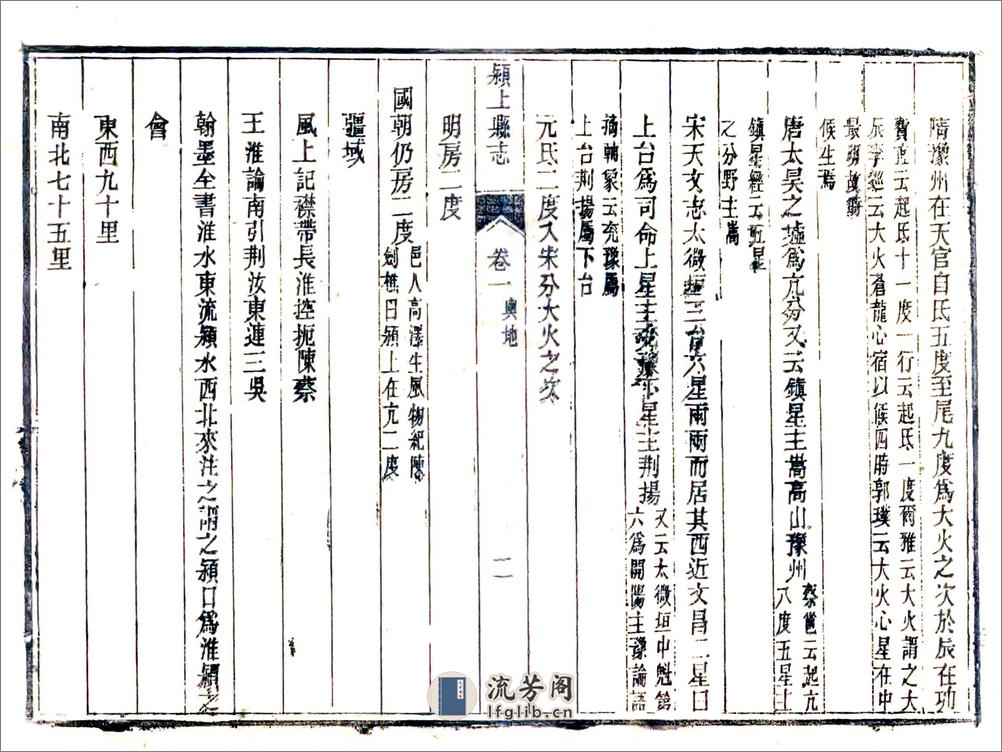 隋豫州在天官自氐五度至尾九度爲大火之次於辰在
費直云起氐十一度一行云起氐一度爾雅云大火謂之大
辰李巡云大火蒼龍心宿以候四時郭璞云大火心星在中
最明故
候生焉
唐太昊之墟爲亢分又云鎮星主嵩高山豫州
蔡邕云起亢
八度五星主
鎮星經云五星
之分野主嵩
宋天文志太微垣三台六星兩兩而居其西近文昌二星曰
上台爲司命上星主兗豫下星主荆揚
又云太微垣中魁第
六爲開陽主豫論語
摘輔象云兗豫屬
上台荆揚屬下台
元氐二度入宋分大火之次
潁上縣志
卷一
輿地
二
明房二度
國朝仍房二度
邑人高澤生風物紀陳
劍樵曰潁上在亢二度
疆域
風上記襟帶長淮控扼陳蔡
王淮論南引荆汝東連三吳
翰墨全書淮水東流潁水西北來注之謂之潁口爲淮潁之
會
東西九十里
南北七十五里
流芳阁
lfglib.cn